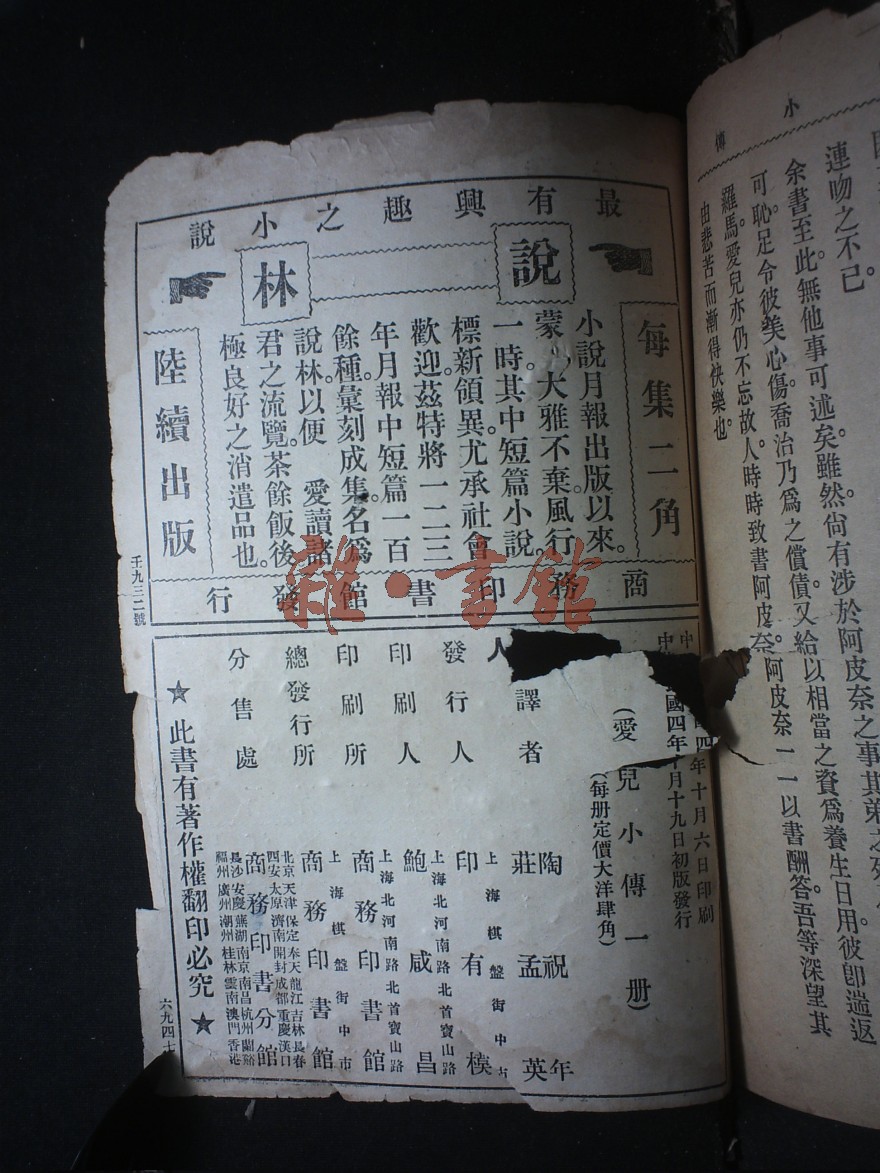 小傳
連吻之不已。
余書至此。無他事可述矣。雖然尚有涉於阿皮奈之事其弟之
可恥。足令彼美心傷。喬治乃爲之償債。又給以相當之資爲養生日用。彼卽遄返
羅馬。愛兒亦仍不忘故人。時時致書阿皮奈。阿皮奈一一以書酬答。吾等深望其
由悲苦而漸得快樂也
最有興趣之小說
說林
每集二角
小說月報出版以來。
蒙大雅不棄。風行
一時。其中短篇小說。
標新領異。尤承社會
歡迎。茲特將一二三
年月報中短篇一百
餘種。彙刻成集。名爲
說林。以便 愛讀諸
君之流覽。茶餘飯後
極良好之消遣品也。
陸續出版
商務印書館發行
壬九三二號
中四年十月六日印刷
中國四年十月十九日初版發行
(愛兒小傳一册)
(每册定價大洋肆角)
譯者 陶祝年 莊孟英
發行人 上海棋盤街中市 印有模
印刷人 上海北河南路北首寶山路 鮑咸昌
印刷所 上海北河南路北首寶山路 商務印書館
總發行所 上海棋盤街中市 商務印書館
分售處 北京天津保定奉天龍江吉林長春
西安太原濟南開封成都重慶漢口
商務印書分館
長沙安慶蕪湖南京南昌杭州蘭谿
福州廣州潮州桂林雲南澳門香港
★此書有著作權翻印必究★
六九四
雜·書館